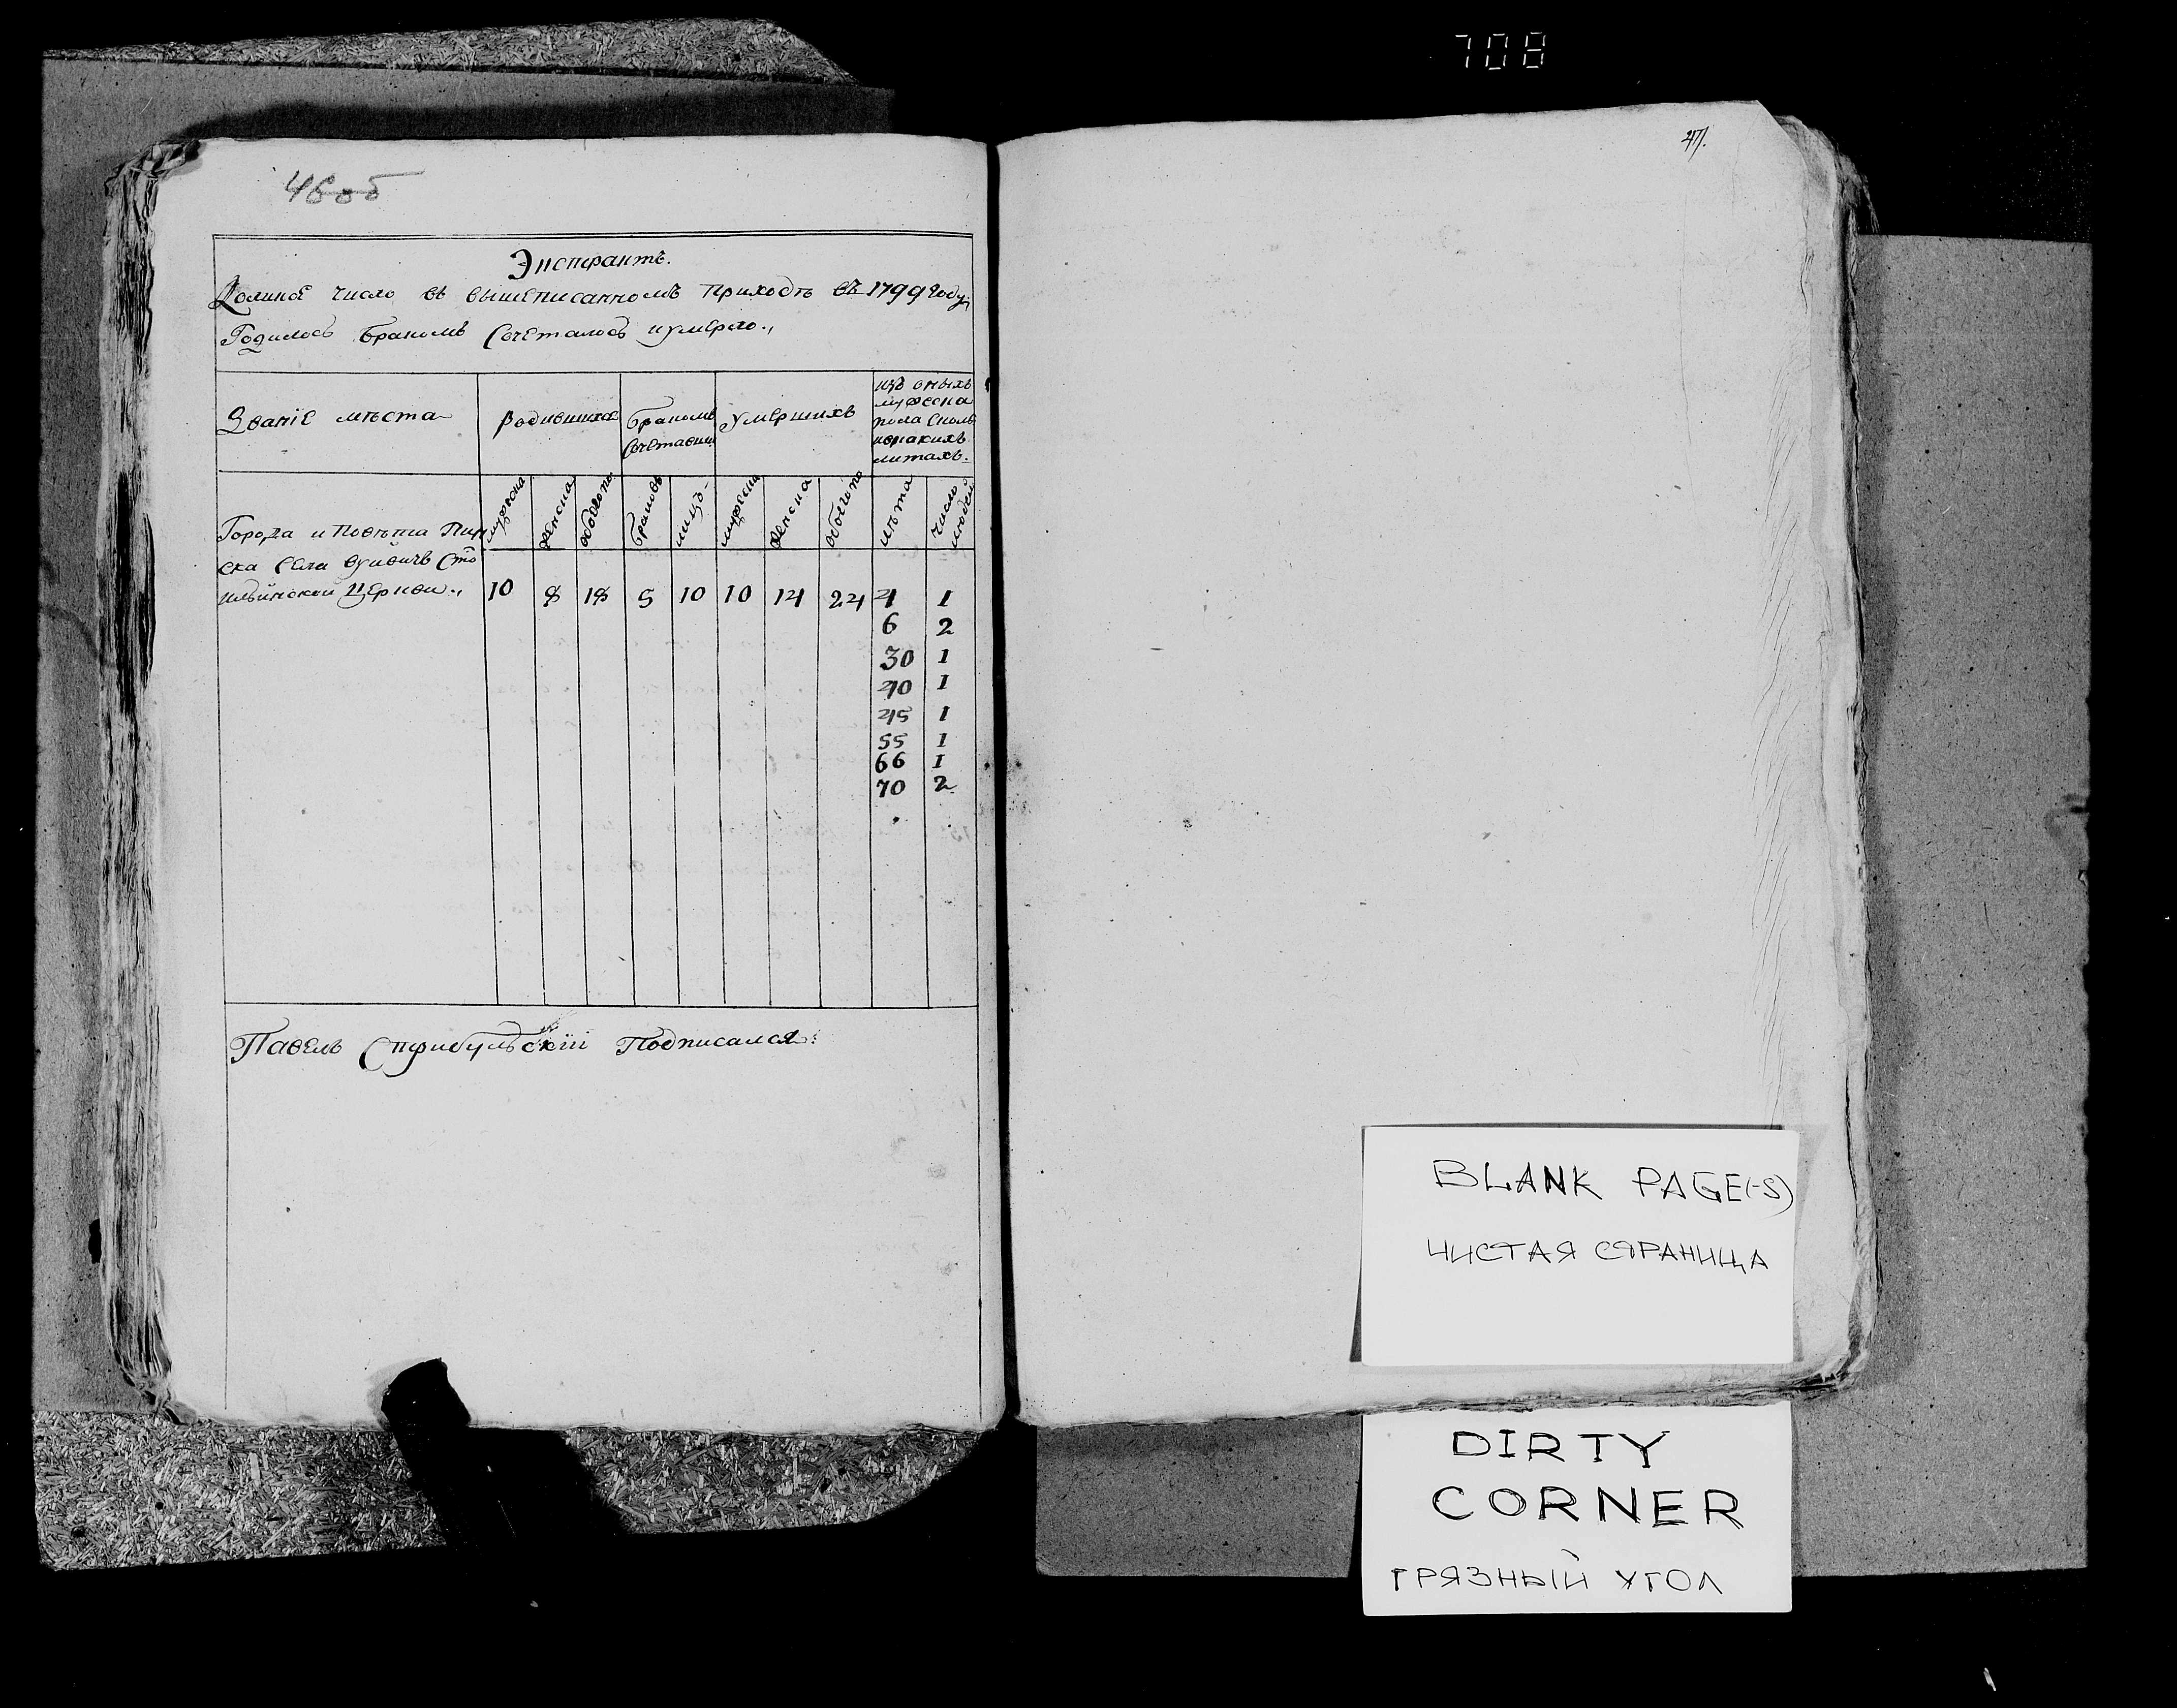 708
46об
47.
Экстрактъ.
Коликое число въ вышеписанномъ приходѣ въ 1799 году,
Родилось бракомъ сочеталось и умерло.,
Званіе мѣста
Родившихся
бракомъ
сочетавши
умершихъ
изъ оныхъ
мужеска
пола сколь
ко накихъ
литахъ.
мужеска
женска
обоего по
браковъ
лицъ
мужеска
женска
обоего по
лѣта
число
людей
Города и Повѣта Пин
ска села Вуивичъ Сто
ильинской Церкви.,
10 8 18 5 10 10 14 24 4 1
6 2
30 1
40 1
45 1
55 1
66 1
70 2
Павелъ Подписался:
BLANK PAGE(-S)
ЧИСТАЯ СТРАНИЦА
DIRTY
CORNER
ГРЯЗНЫЙ УГОЛ